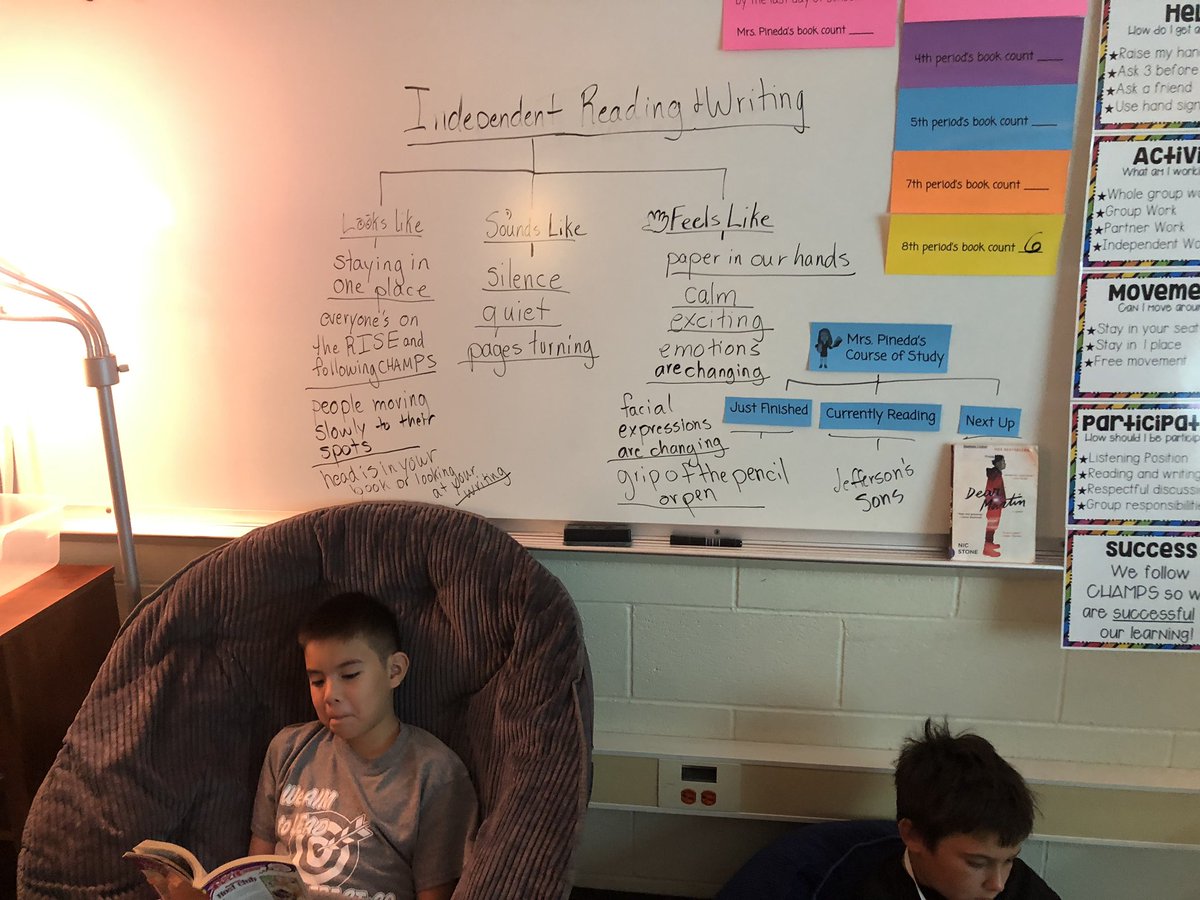 Mrs. Pineda's book count ____
4th period's book count ____
5th period's book count ____
7th period's book count ____
8th period's book count 6
Independent Reading & Writing
Looks Like
staying in
one place
everyone's on
the RISE and
following CHAMPS
people moving
slowly to their
spots
head is in your
book or looking
at your
writing
Sounds Like
silence
quiet
pages turning
Feels Like
paper in our hands
calm
exciting
emotions
are changing
facial
expressions
are changing
grip of the pencil
or pen
Mrs. Pineda's
Course of Study
Just Finished
Currently Reading
Next Up
Jefferson's
Sons
Dear
Martin
NIC
STONE
How do I get a
Raise my
Ask 3 before
Ask a friend
Use hand
What am I
Whole group
Group Work
Partner Work
Independent
Can I move
Stay in your seat
Stay in 1 place
Free movement
How should I be
Listening Position
Reading and writing
Respectful
Group
success
We follow
CHAMPS so
are successful
our learning!
Host Club